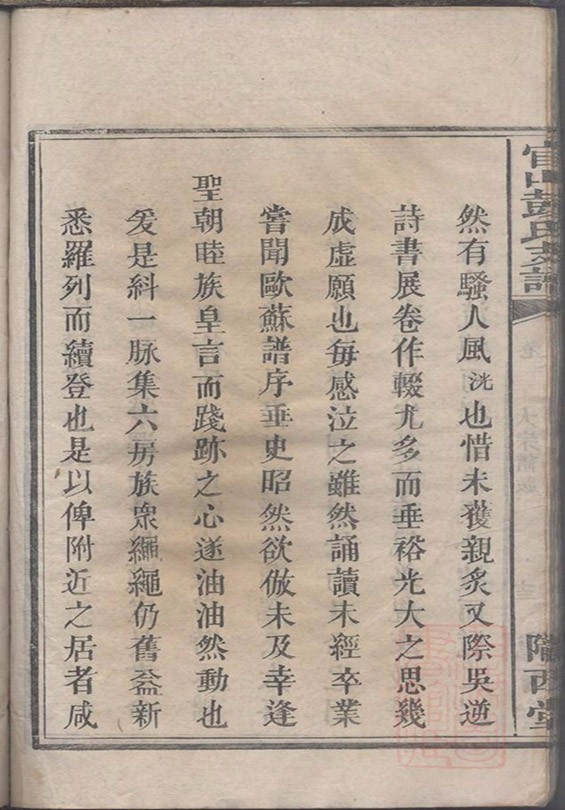 官山彭氏支譜
隴西堂
然有騷人風洸也惜未獲親炙又際吳逆
詩書展卷作輟尤多而垂裕光大之思幾
成虛願也每感泣之雖然誦讀未經卒業
嘗聞歐蘇譜序垂史昭然欲倣未及幸逢
聖朝睦族皇言而踐跡之心遂油油然動也
爰是糾一脉集六房族衆繩繩仍舊益新
悉羅列而續登也是以俾附近之居者咸